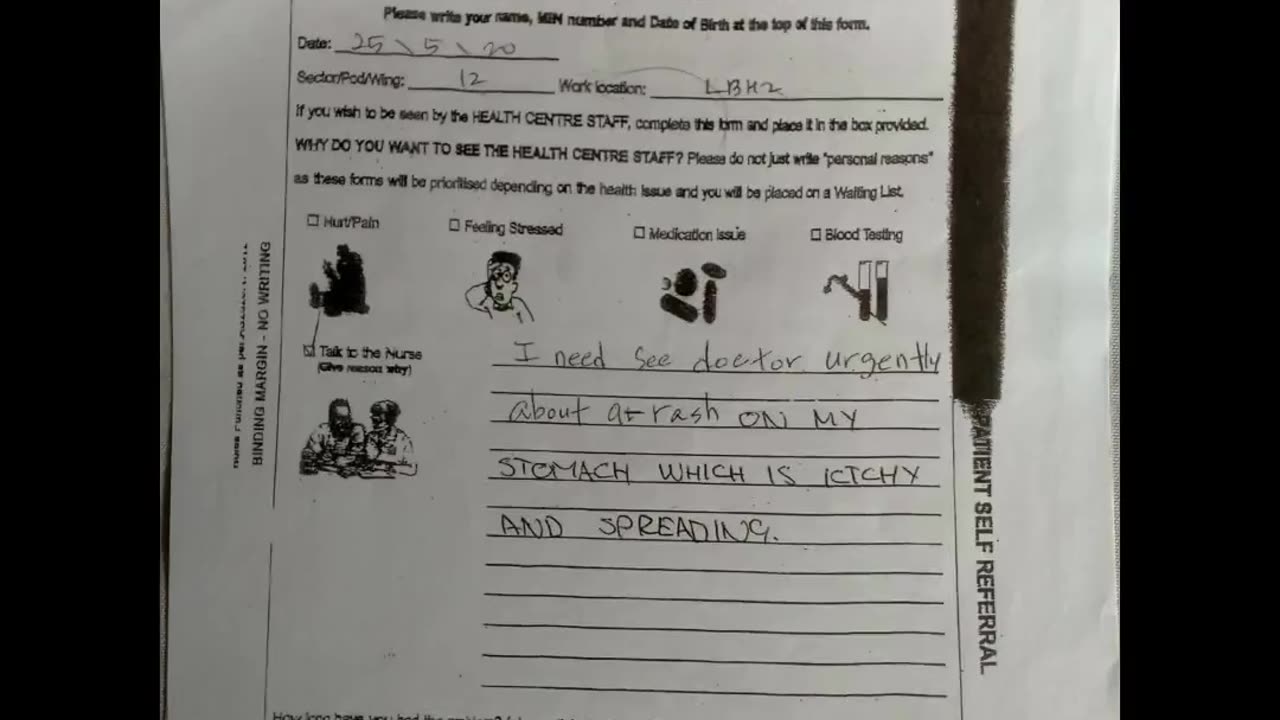 Please write your name, MIN number and Date of Birth at the top of this form.
Date: 25\5\20
Sector/Pod/Wing: 12 Work location: LBH2
If you wish to be seen by the HEALTH CENTRE STAFF, complete this form and place it in the box provided.
WHY DO YOU WANT TO SEE THE HEALTH CENTRE STAFF? Please do not just write "personal reasons"
as these forms will be prioritised depending on the health issue and you will be placed on a Waiting List.
Hurt/Pain Feeling Stressed Medication Issue Blood Testing
Talk to the Nurse
(Give reason why)
I need see doctor urgently
about a rash ON MY
STOMACH WHICH IS ICTCHY
AND SPREADING.
BINDING MARGIN - NO WRITING
PATIENT SELF REFERRAL
How long have you had the problem?